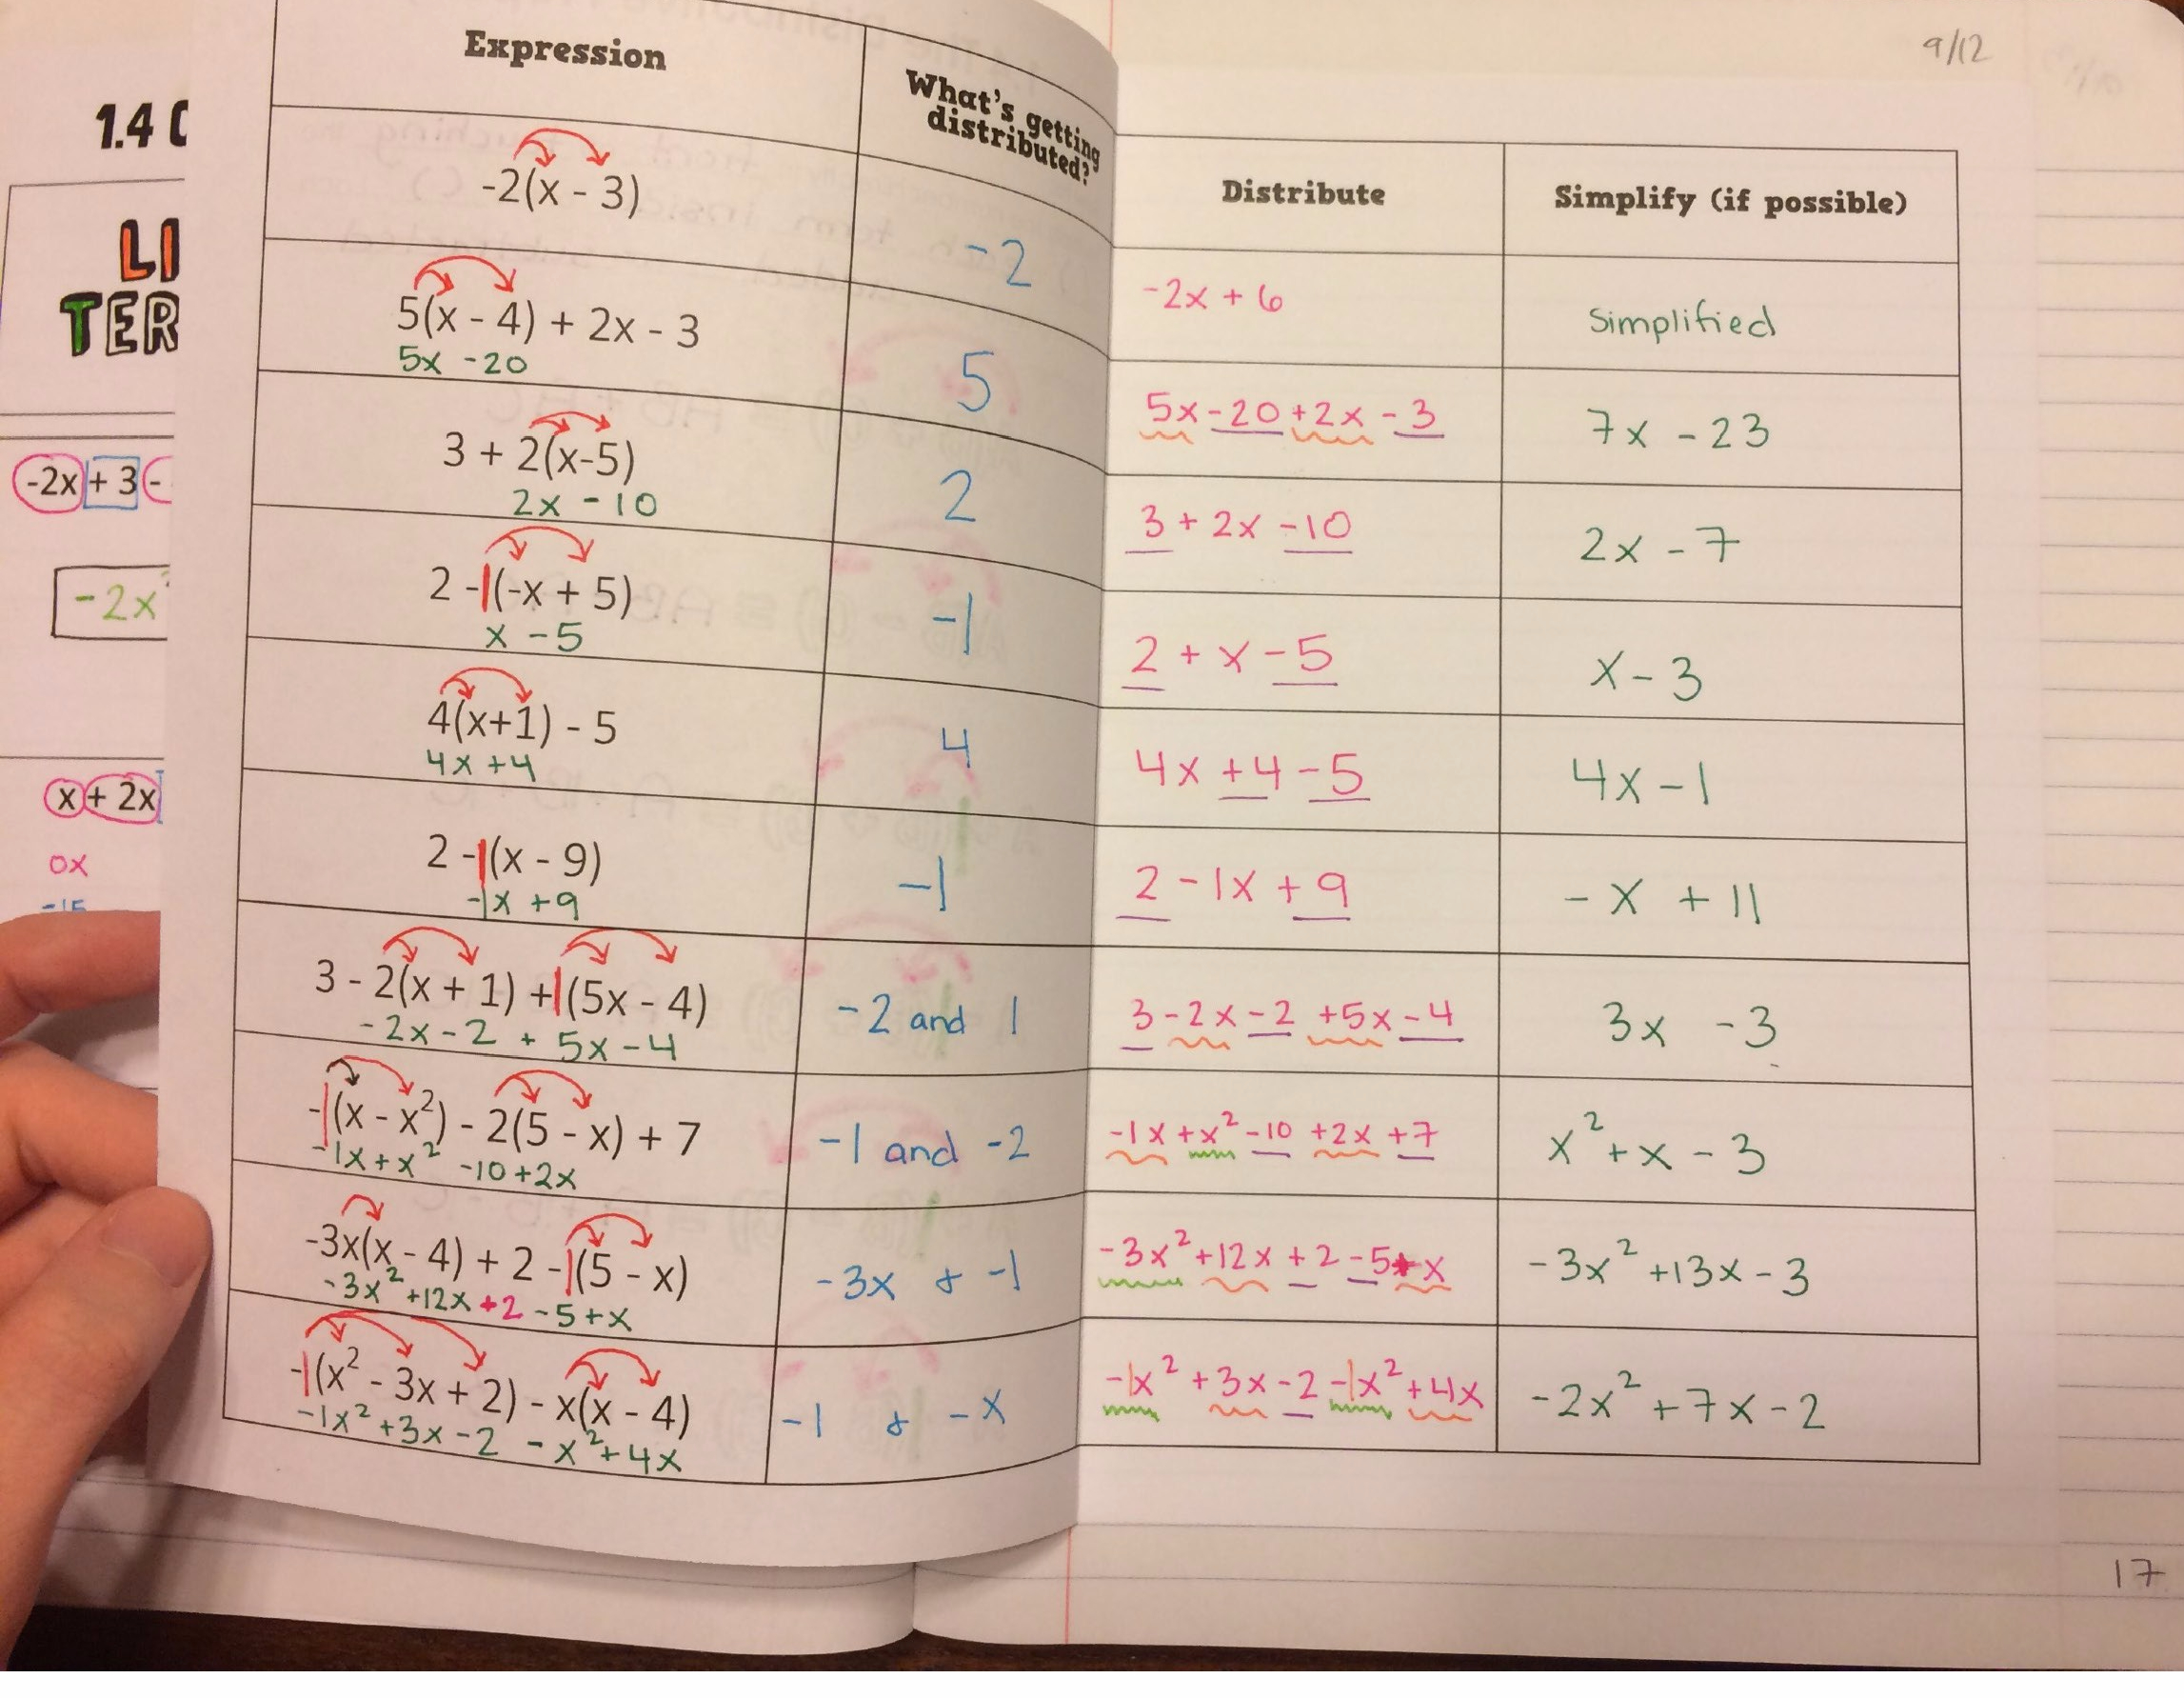 9/12
1.4
LI
TER
-2x + 3 -
-2x
x + 2x
0x
-15
Expression
What's getting
distributed?
Distribute
Simplify (if possible)
-2(x - 3)
-2
-2x + 6
Simplified
5(x - 4) + 2x - 3
5x -20
5
5x -20 +2x -3
7x -23
3 + 2(x-5)
2x -10
2
3 + 2x -10
2x -7
2 -1(-x + 5)
x -5
-1
2 + x -5
x -3
4(x+1) - 5
4x +4
4
4x +4 -5
4x -1
2 -1(x - 9)
-1x +9
-1
2 -1x +9
-x +11
3 - 2(x + 1) +1(5x - 4)
-2x -2 + 5x -4
-2 and 1
3 -2x -2 +5x -4
3x -3
-1(x - x²) - 2(5 - x) + 7
-1x + x² -10 +2x
-1 and -2
-1x +x² -10 +2x +7
x² + x -3
-3x(x - 4) + 2 -1(5 - x)
-3x² +12x +2 -5 +x
-3x & -1
-3x² +12x +2 -5 +x
-3x² +13x -3
-1(x² - 3x + 2) - x(x - 4)
-1x² +3x -2 -x² +4x
-1 & -x
-1x² +3x -2 -1x² +4x
-2x² +7x -2
17